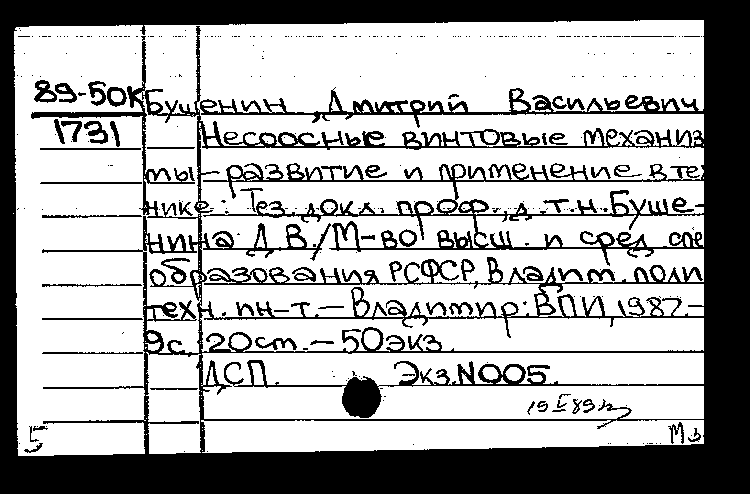 89-50К Бушенин, Дмитрий Васильевич
1731 Несоосные винтовые механиз
мы – развитие и применение в тех
нике: Тез. докл. проф., д.т.н. Буше-
нина Д.В./М-во высш. и сред. спе
образования РСФСР, Владим. поли
техн. ин-т. – Владимир: ВПИ, 1987. –
9с, 20см. – 50экз.
ДСП. Экз.N005.
5